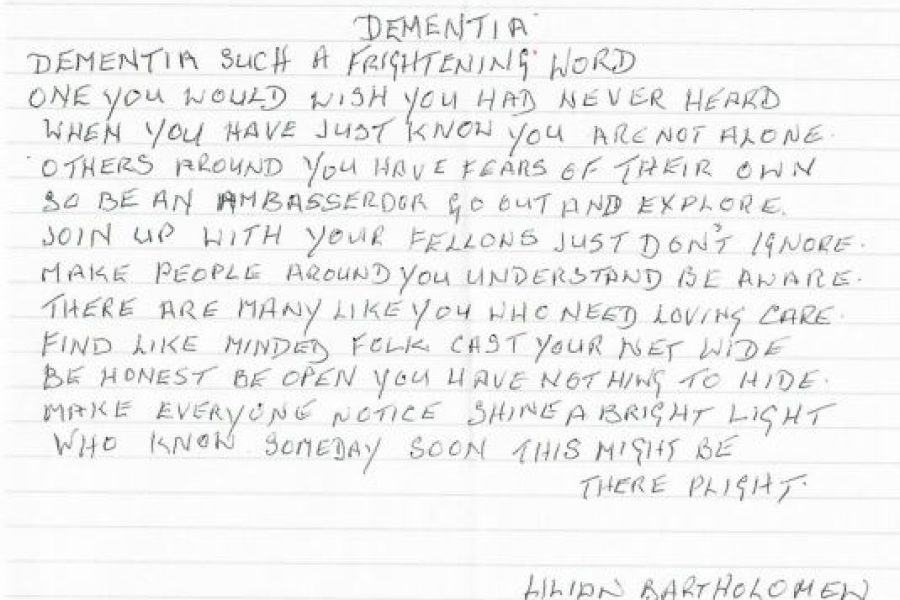 DEMENTIA
DEMENTIA SUCH A FRIGHTENING WORD
ONE YOU WOULD WISH YOU HAD NEVER HEARD
WHEN YOU HAVE JUST KNOW YOU ARE NOT ALONE.
OTHERS AROUND YOU HAVE FEARS OF THEIR OWN
SO BE AN AMBASSERDOR GO OUT AND EXPLORE.
JOIN UP WITH YOUR FELLOWS JUST DON'T IGNORE.
MAKE PEOPLE AROUND YOU UNDERSTAND BE AWARE.
THERE ARE MANY LIKE YOU WHO NEED LOVING CARE.
FIND LIKE MINDED FOLK CAST YOUR NET WIDE
BE HONEST BE OPEN YOU HAVE NOTHING TO HIDE.
MAKE EVERYONE NOTICE SHINE A BRIGHT LIGHT
WHO KNOW SOMEDAY SOON THIS MIGHT BE
THERE PLIGHT.
LILIAN BARTHOLOMEW